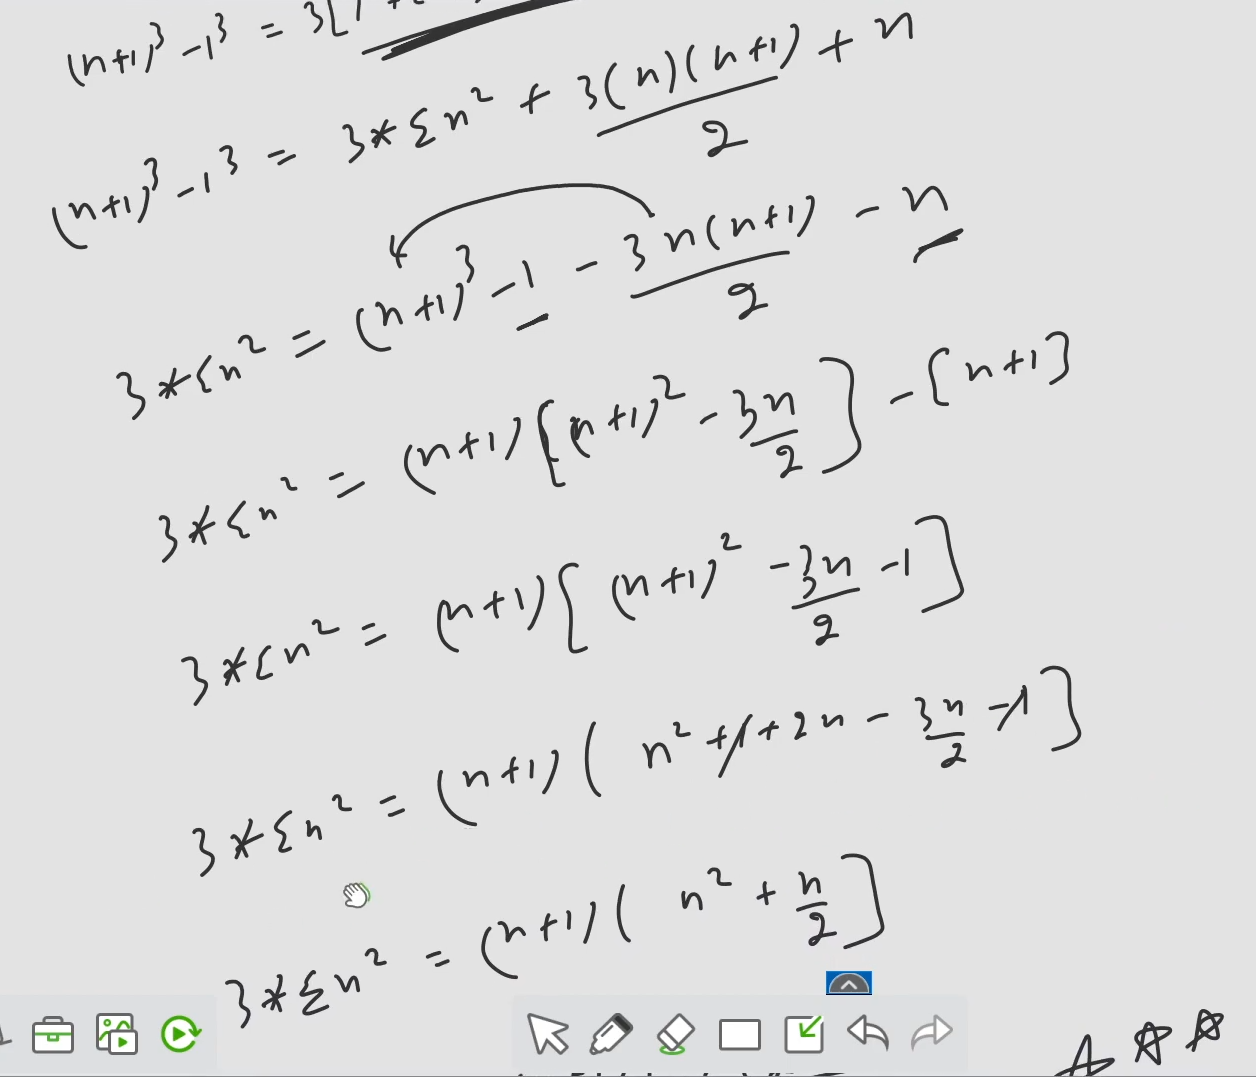 (n+1)³ - 1³ = 3[1
(n+1)³ - 1³ = 3*Σn² + 3(n)(n+1)/2 + n
3*Σn² = (n+1)³ - 1 - 3n(n+1)/2 - n
3*Σn² = (n+1)[(n+1)² - 3n/2] - [n+1]
3*Σn² = (n+1)[(n+1)² - 3n/2 - 1]
3*Σn² = (n+1)(n² + 1 + 2n - 3n/2 - 1]
3*Σn² = (n+1)(n² + n/2]